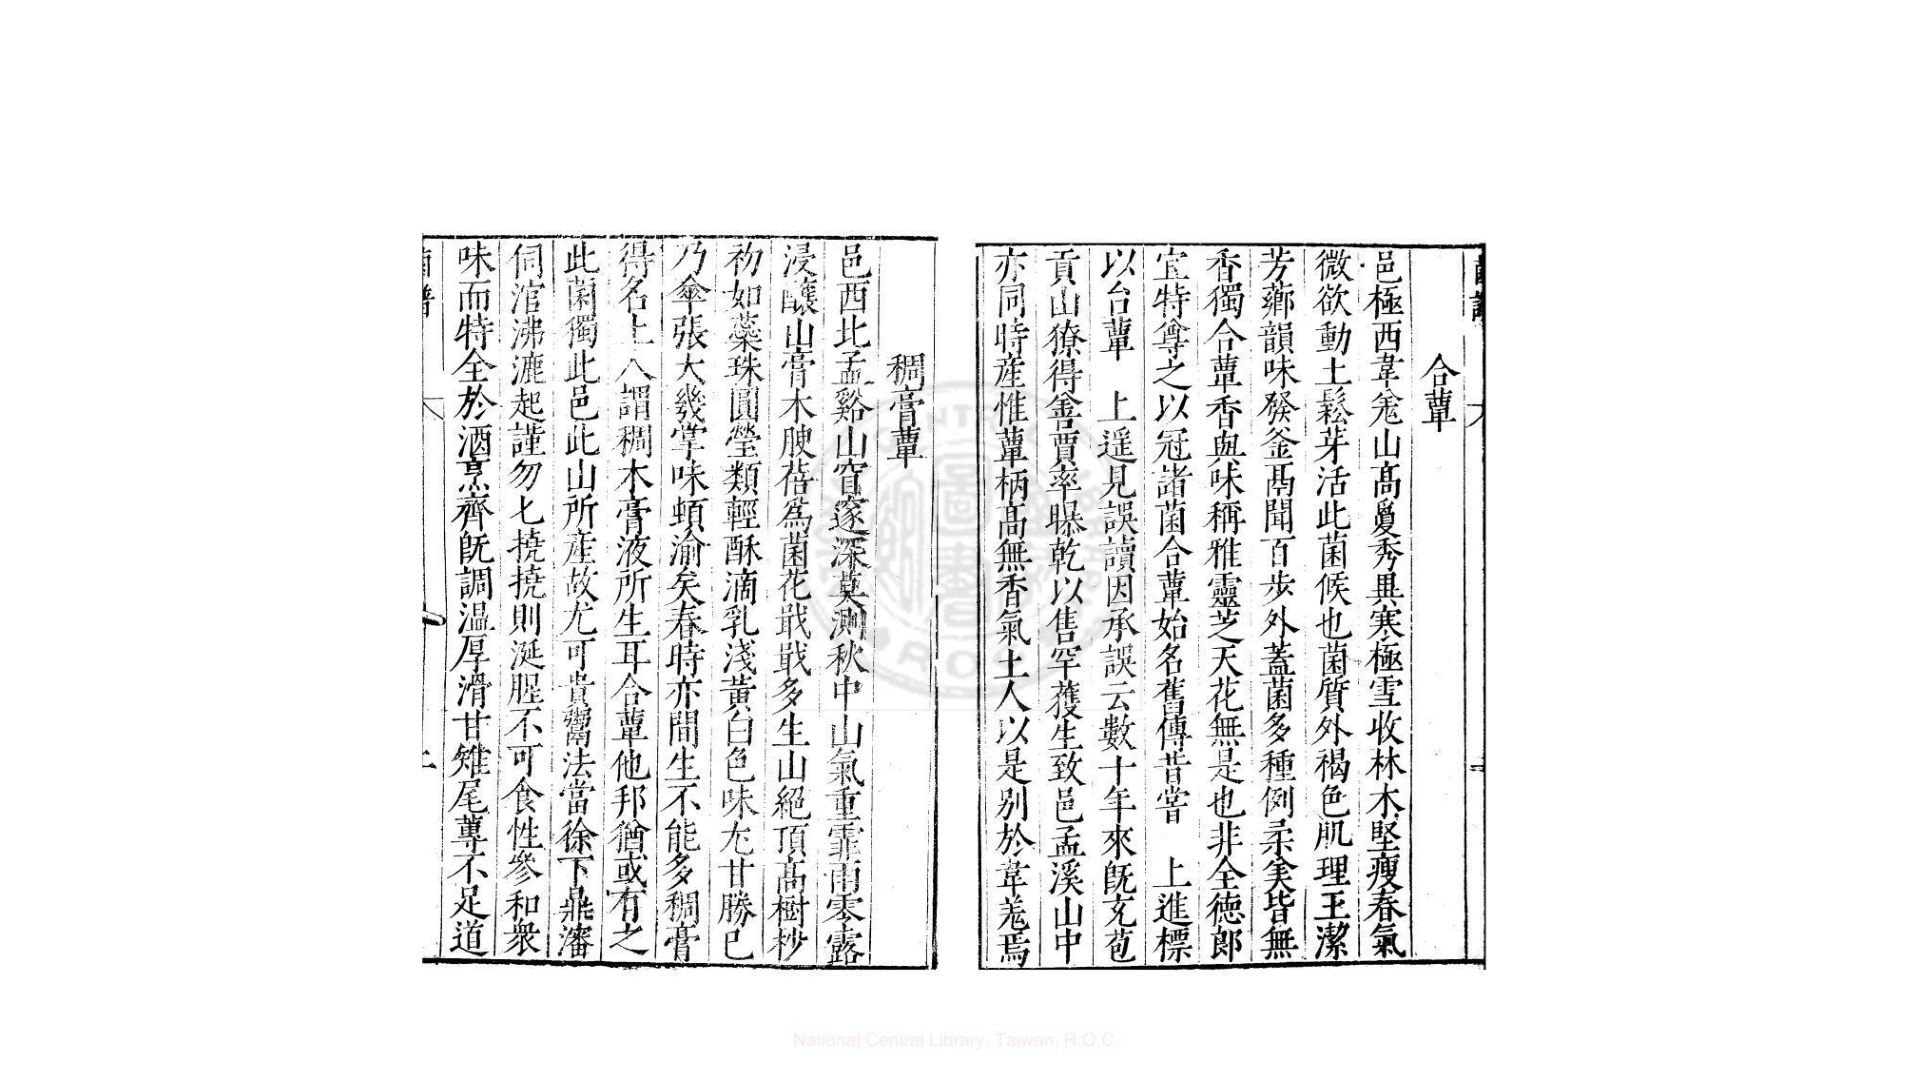 合蕈
邑極西韋羗山髙敻秀異寒極雪收林木堅瘦春氣
微欲動土鬆芽活此菌候也菌質外褐色肌理玉潔
芳薌韻味發釜鬲聞百步外蓋菌多種例柔美皆無
香獨合蕈香與味稱雅靈芝天花無是也非全德郎
宜特尊之以冠諸菌合蕈始名舊傳昔嘗 上進標
以台蕈 上遥見誤讀因承誤云數十年來旣充苞
貢山獠得善賈率曝乾以售罕獲生致邑孟溪山中
亦同時産惟蕈柄髙無香氣土人以是别於韋羗焉
稠膏蕈
邑西北孟谿山窅邃深莫測秋中山氣重霏雨零露
浸釀山膏木腴蓓爲菌花戢戢多生山絕頂髙樹杪
初如蘂珠圓瑩類輕酥滴乳淺黃白色味尤甘勝已
乃傘張大幾掌味頓渝矣春時亦間生不能多稠膏
得名土人謂稠木膏液所生耳合蕈他邦猶或有之
此菌獨此邑此山所産故尤可貴鬻法當徐下鼎瀋
伺涫沸漉起謹勿匕撓撓則涎腥不可食性參和衆
味而特全於酒烹齊旣調温厚滑甘雉尾蓴不足道
菌譜